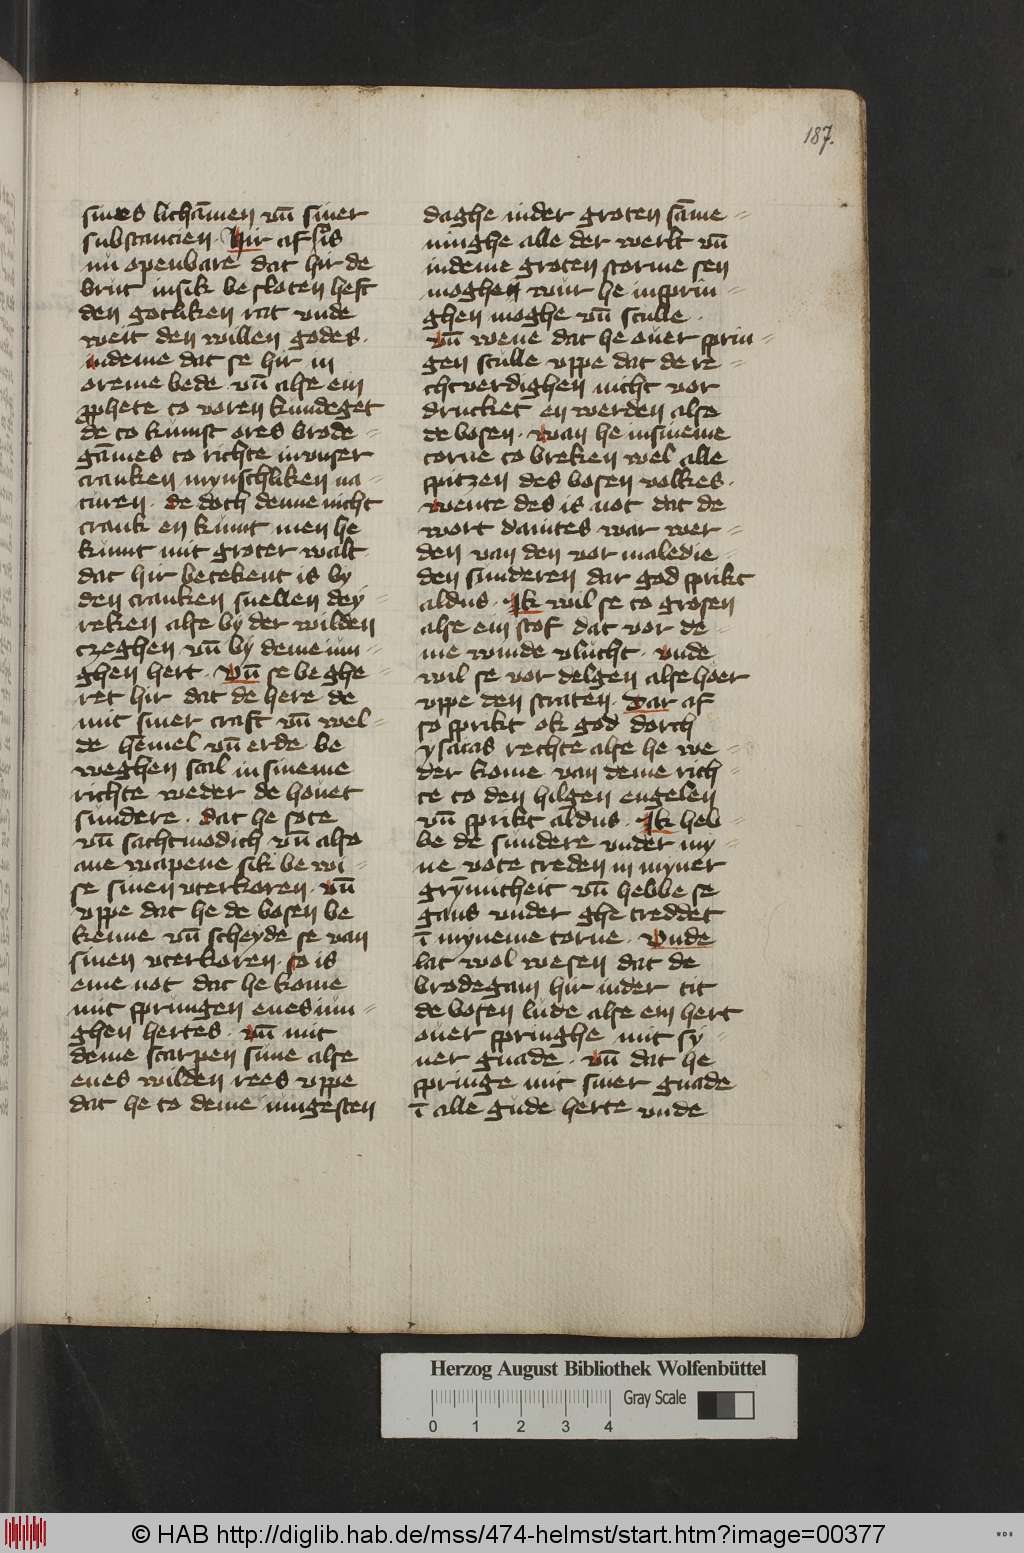 187.
sines lichāmen vn̄ siner
substancien. Hir af so is
nu openbare dat hir de
brut insik besloten heft
den gotliken rat vnde
weit den willen godes.
indeme dat se hir in
oreme bede. vn̄ alse ein
pphete to voren kundeget
de to kumst ores brode=
gāmes to richte in vnser
cranken mynschliken na=
turen. de doch denne nicht
crank en kumt men he
kumt mit groter walt
dat hir betekent is by
den cranken snellen dey=
reken alse by der wilden
czeghen. vn̄ by deme iun=
ghen hert. Vn̄ se beghe=
ret hir dat de here de
mit siner craft vn̄ wel=
de hemel vn̄ erde be
weghen scal in sineme
richte weder de houet
sundere. dat he sote
vn̄ sachtmodich vn̄ also
ane wapene sik bewi=
se sinen vterkoren. vn̄
vppe dat he de bosen be
kenne vn̄ scheyde se van
sinen vterkoren. so is
eme not dat he kome
mit springen enes iun=
ghen hertes. vn̄ mit
deme scarpen sinne alse
enes wilden rees vppe
dat he to deme iungesten
daghe inder groten sāme=
ninghe alle der werlt vn̄
indeme groten storme sen
moghen wur he insprin=
ghen moghe vn̄ sculle.
vn̄ wene dat he ouer sprin=
gen sculle vppe dat de re=
chtverdighen nicht vor
drucket en werden also
de bosen. wan he insineme
torne to breken wel alle
spitzen des bosen volkes.
wente des is not dat de
wort dauites war wer=
den van den vor maledie=
den sunderen dar god sprikt
aldus. Ik wil se to grosen
alse ein stof dat vor de=
me winde vlucht. vnde
wil se vor delgen alse hoer
vppe den straten. Dar af
so sprikt ok god dorch
ysaias rechte alse he we=
der kome van deme rich=
te to den hilgen engelen
vn̄ sprikt aldus. Ik heb=
be de sundere vnder my=
ne vote treden in myner
grȳmicheit vn̄ hebbe se
gans vnder ghe treddet
ī myneme torne. Vnde
lat wol wesen dat de
brodegam hir inder tit
de bosen lude alse ein hert
ouer springhe mit sy=
ner gnade. vn̄ dat he
springe mit siner gnade
ī alle gude herte vnde
Herzog August Bibliothek Wolfenbüttel
0 1 2 3 4
Gray Scale
© HAB http://diglib.hab.de/mss/474-helmst/start.htm?image=00377